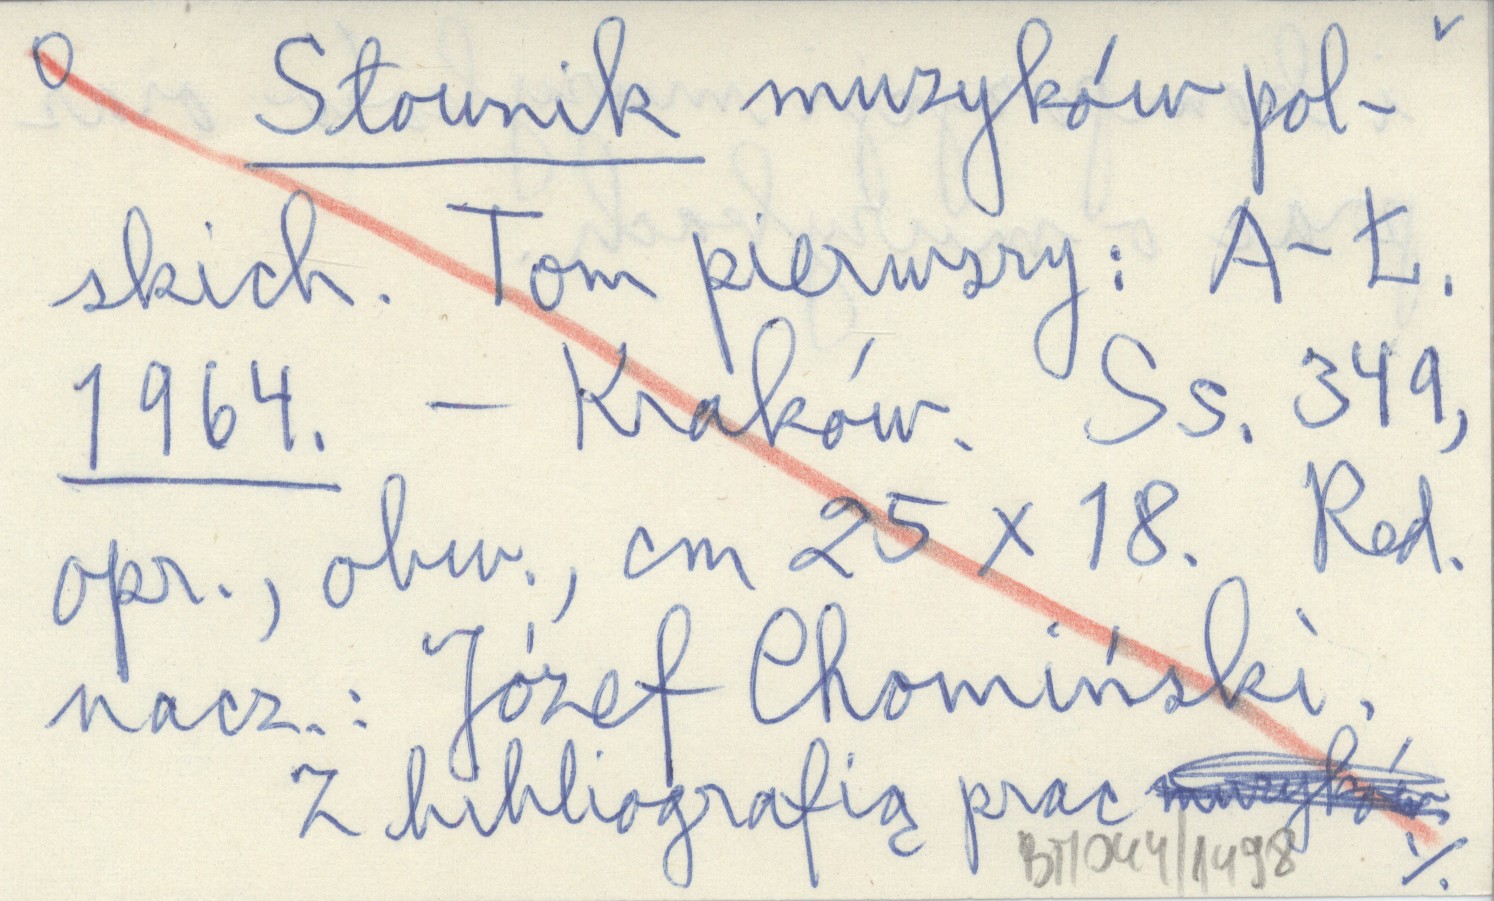 Słownik muzyków pol-
skich. Tom pierwszy: A-Ł.
1964. — Kraków. Ss. 349,
opr., obw., cm 25 x 18. Red.
nacz.: Józef Chomiński.
Z bibliografią prac muzyków
BT/044/1498 ./.